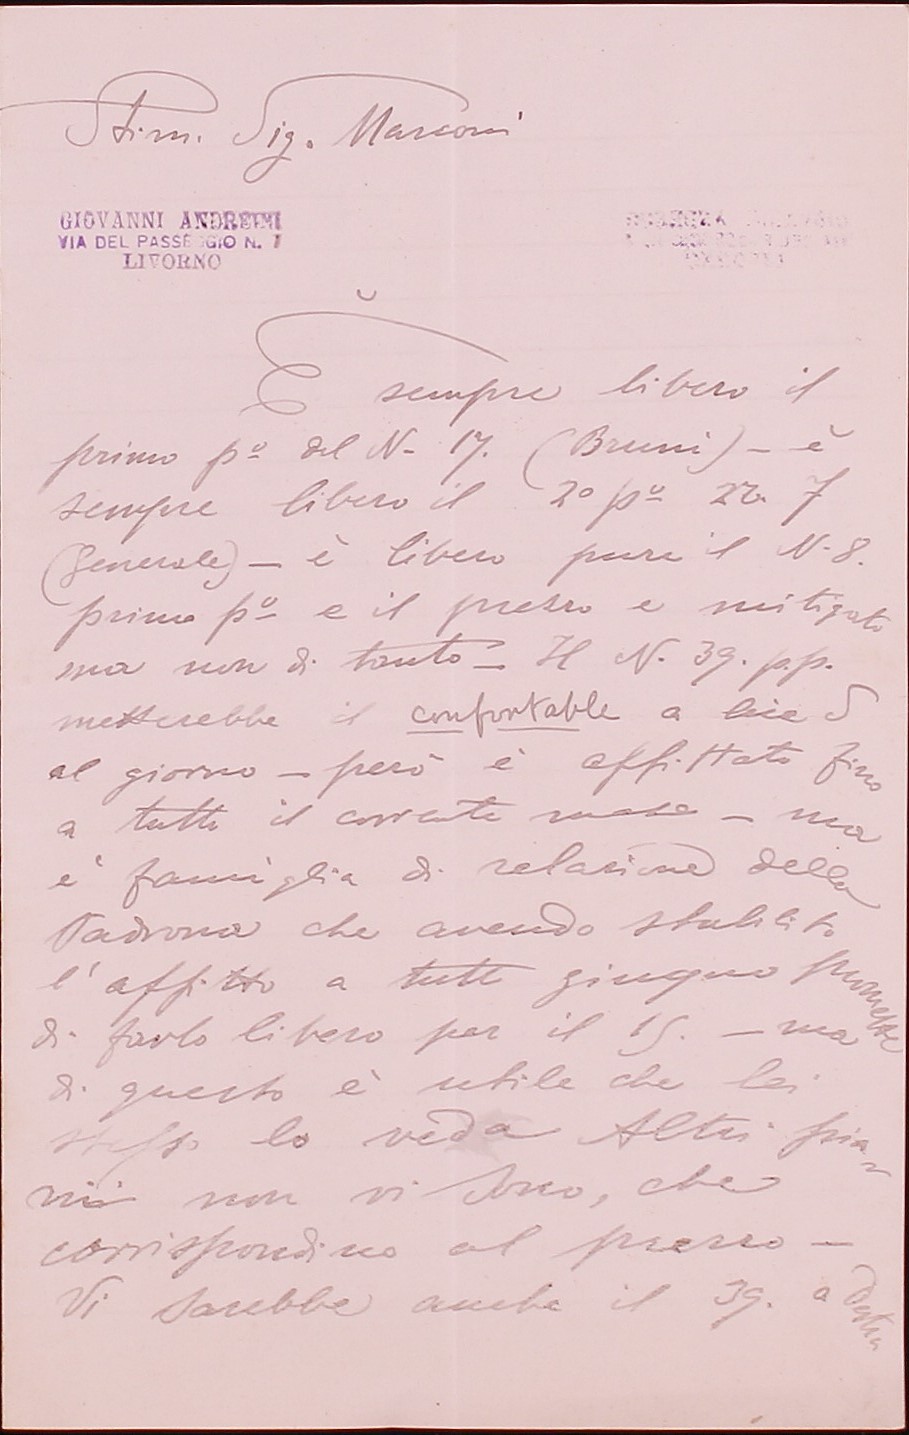 Stim. Sig. Marconi
GIOVANNI ANDREINI
VIA DEL PASSEGGIO N. 1
LIVORNO
È sempre libero il
primo pº del N- 17. (Bruni) - è
sempre libero il 2º pº 7
(Generale) - è libero pure il N-8.
primo pº e il prezzo e mitigato
ma non di tanto - Il N. 39. p.p.
metterebbe il confortable a lire 5
al giorno - però è affittato fino
a tutto il corrente mese - ma
è famiglia di relazione della
Padrona che avendo stabilito
l'affitto a tutto giugno promette
di farlo libero per il 15. - ma
di questo è utile che lei
stesso lo veda Altri pia-
ni non vi sono, che
corrispondino al prezzo -
Vi sarebbe anche il 39. a destra